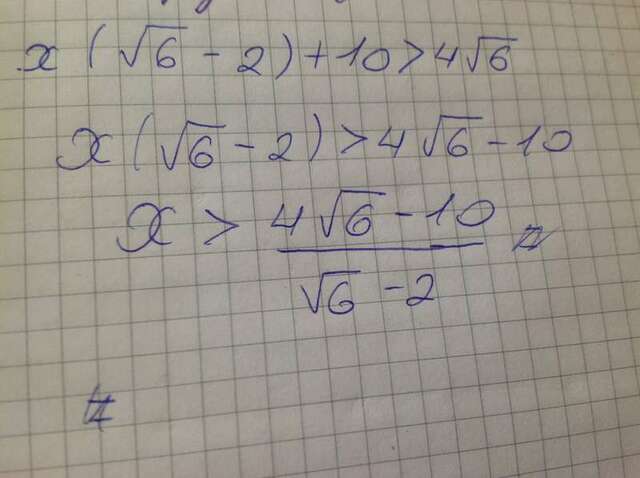 x (√6 - 2) + 10 > 4√6
x (√6 - 2) > 4√6 - 10
x > (4√6 - 10) / (√6 - 2)